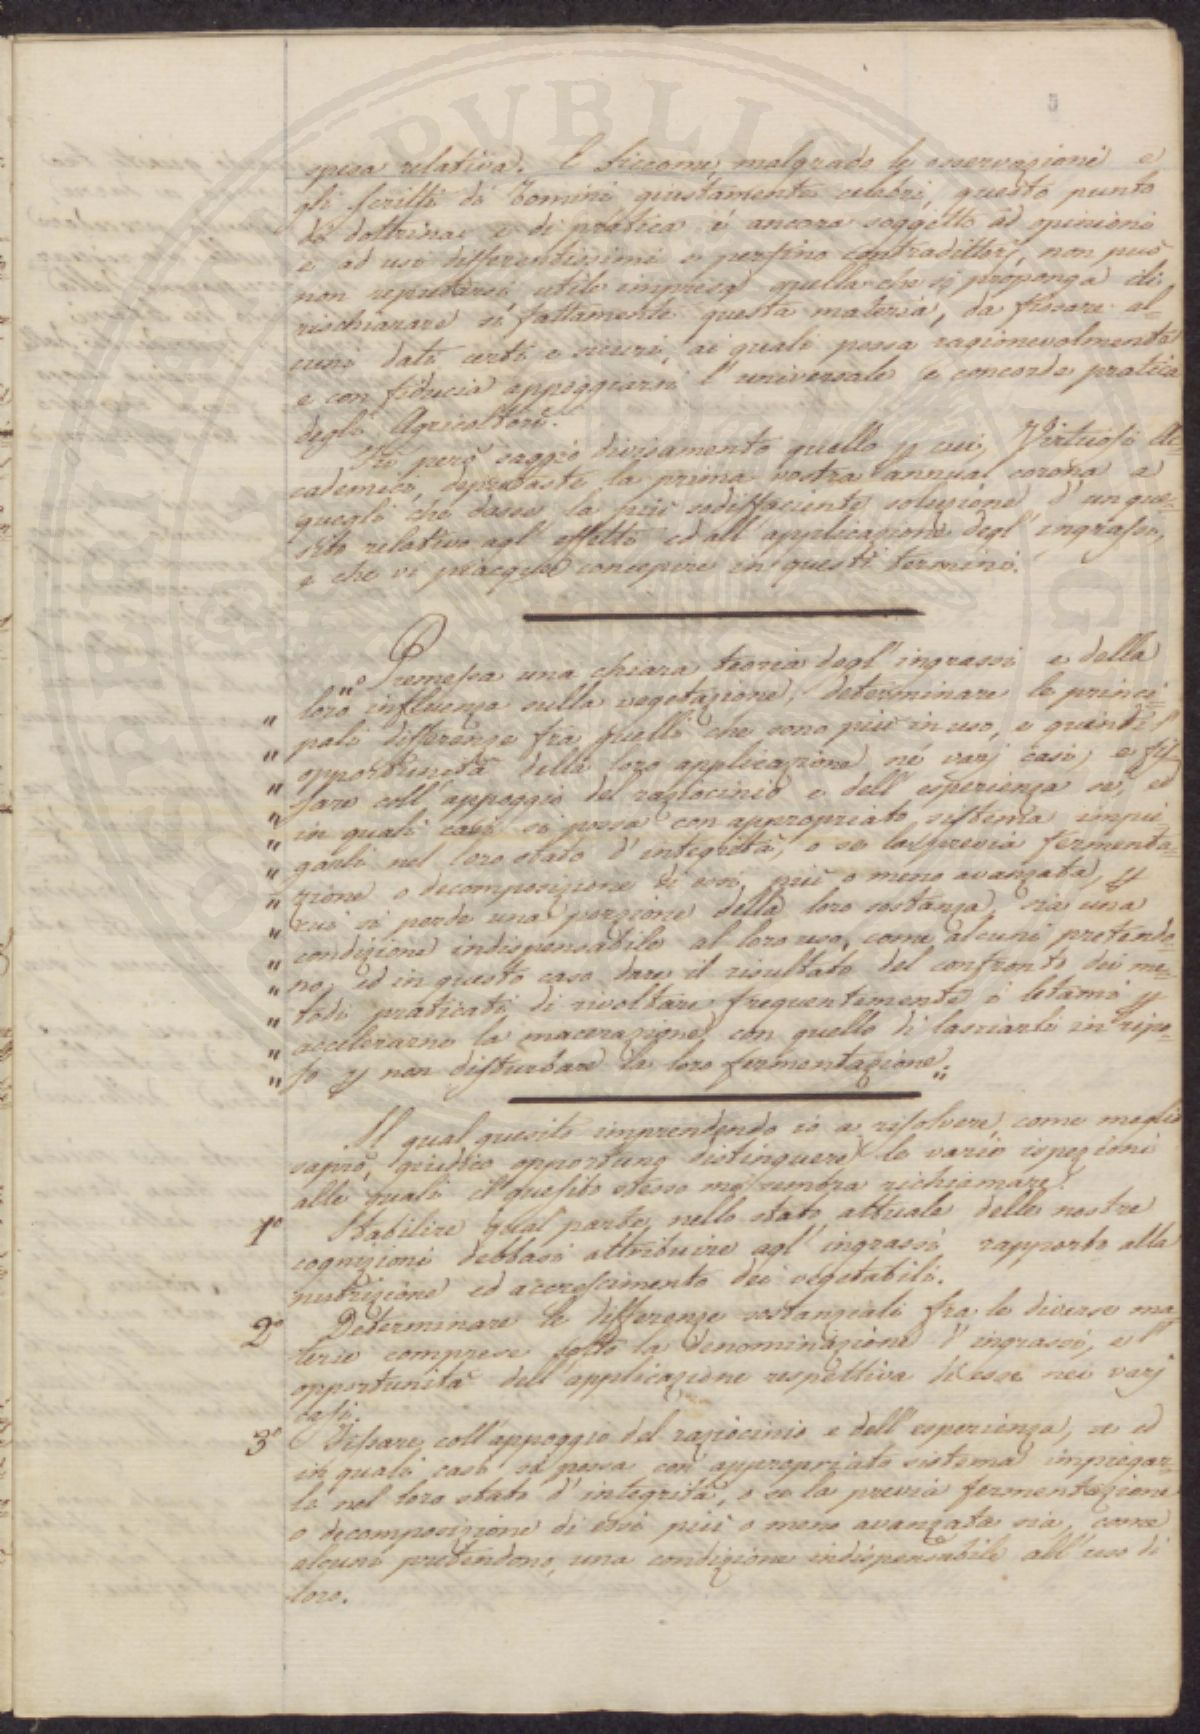 5
spesa relativa. E siccome, malgrado le osservazioni e
gli scritti di Uomini giustamente celebri, questo punto
di dottrina e di pratica é ancora soggetto ad opinioni
e ad usi differentissimi e perfino contradittorj, non può
non reputarsi utile impresa quella che si proponga di
rischiarare sí fattamente questa materia, da fissare al-
cuni dati certi e sicuri, ai quali possa ragionevolmente
e con fiducia appoggiarsi l'universale e concorde pratica
degli Agricoltori.
Fú però saggio divisamento quello p cui, Virtuosi Ac-
cademici, deputaste la prima vostra annua corona a
quegli che dasse la più sodisfaciente soluzione d'un que-
sito relativo agl'effetti ed all'applicazione degl'ingrassi,
e che vi piacque concepire in questi termini.
"Premessa una chiara teoria degl'ingrassi e della
" loro influenza sulla vegetazione, determinare le princi-
" pali differenze fra quelli che sono più in uso, e quindi l'
" opportunità della loro applicazione né varj casi, e fis-
" sare coll'appoggio del raziocinio e dell'esperienza se, ed
" in quali casi si possa con appropriato sistema impie-
" garli nel loro stato d'integrità, o se la previa fermenta-
" zione o decomposizione di essi più o meno avanzata, p
" cui si perde una porzione della loro sostanza, sia una
" condizione indispensabile al loro uso, come alcuni pretendo-
" no, ed in questo caso dare il risultato del confronto dei me-
" todi praticati di rivoltare frequentemente i letami p
" accelerarne la macerazione, con quello di lasciarli in ripo-
" so p non disturbare la loro fermentazione."
Il qual quesito imprendendo io a risolvere, come meglio
saprò, giudico opportuno distinguere le varie ispezioni
alle quali il quesito stesso mi sembra richiamare.
1° Stabilire qual parte, nello stato attuale delle nostre
cognizioni debbasi attribuire agl'ingrassi rapporto alla
nutrizione ed accrescimento dei vegetabili.
2° Determinare le differenze sostanziali fra le diverse ma-
terie comprese sotto la denominazione d'ingrassi, e l'
opportunità dell'applicazione respettiva di esse nei varj
casi.
3° Fissare coll'appoggio del raziocinio e dell'esperienza, se ed
in quali casi si possa con appropriato sistema impiegar-
li nel loro stato d'integrità, o se la previa fermentazione
o decomposizione di essi più o meno avanzata sia, come
alcuni pretendono, una condizione indispensabile all'uso di
loro.